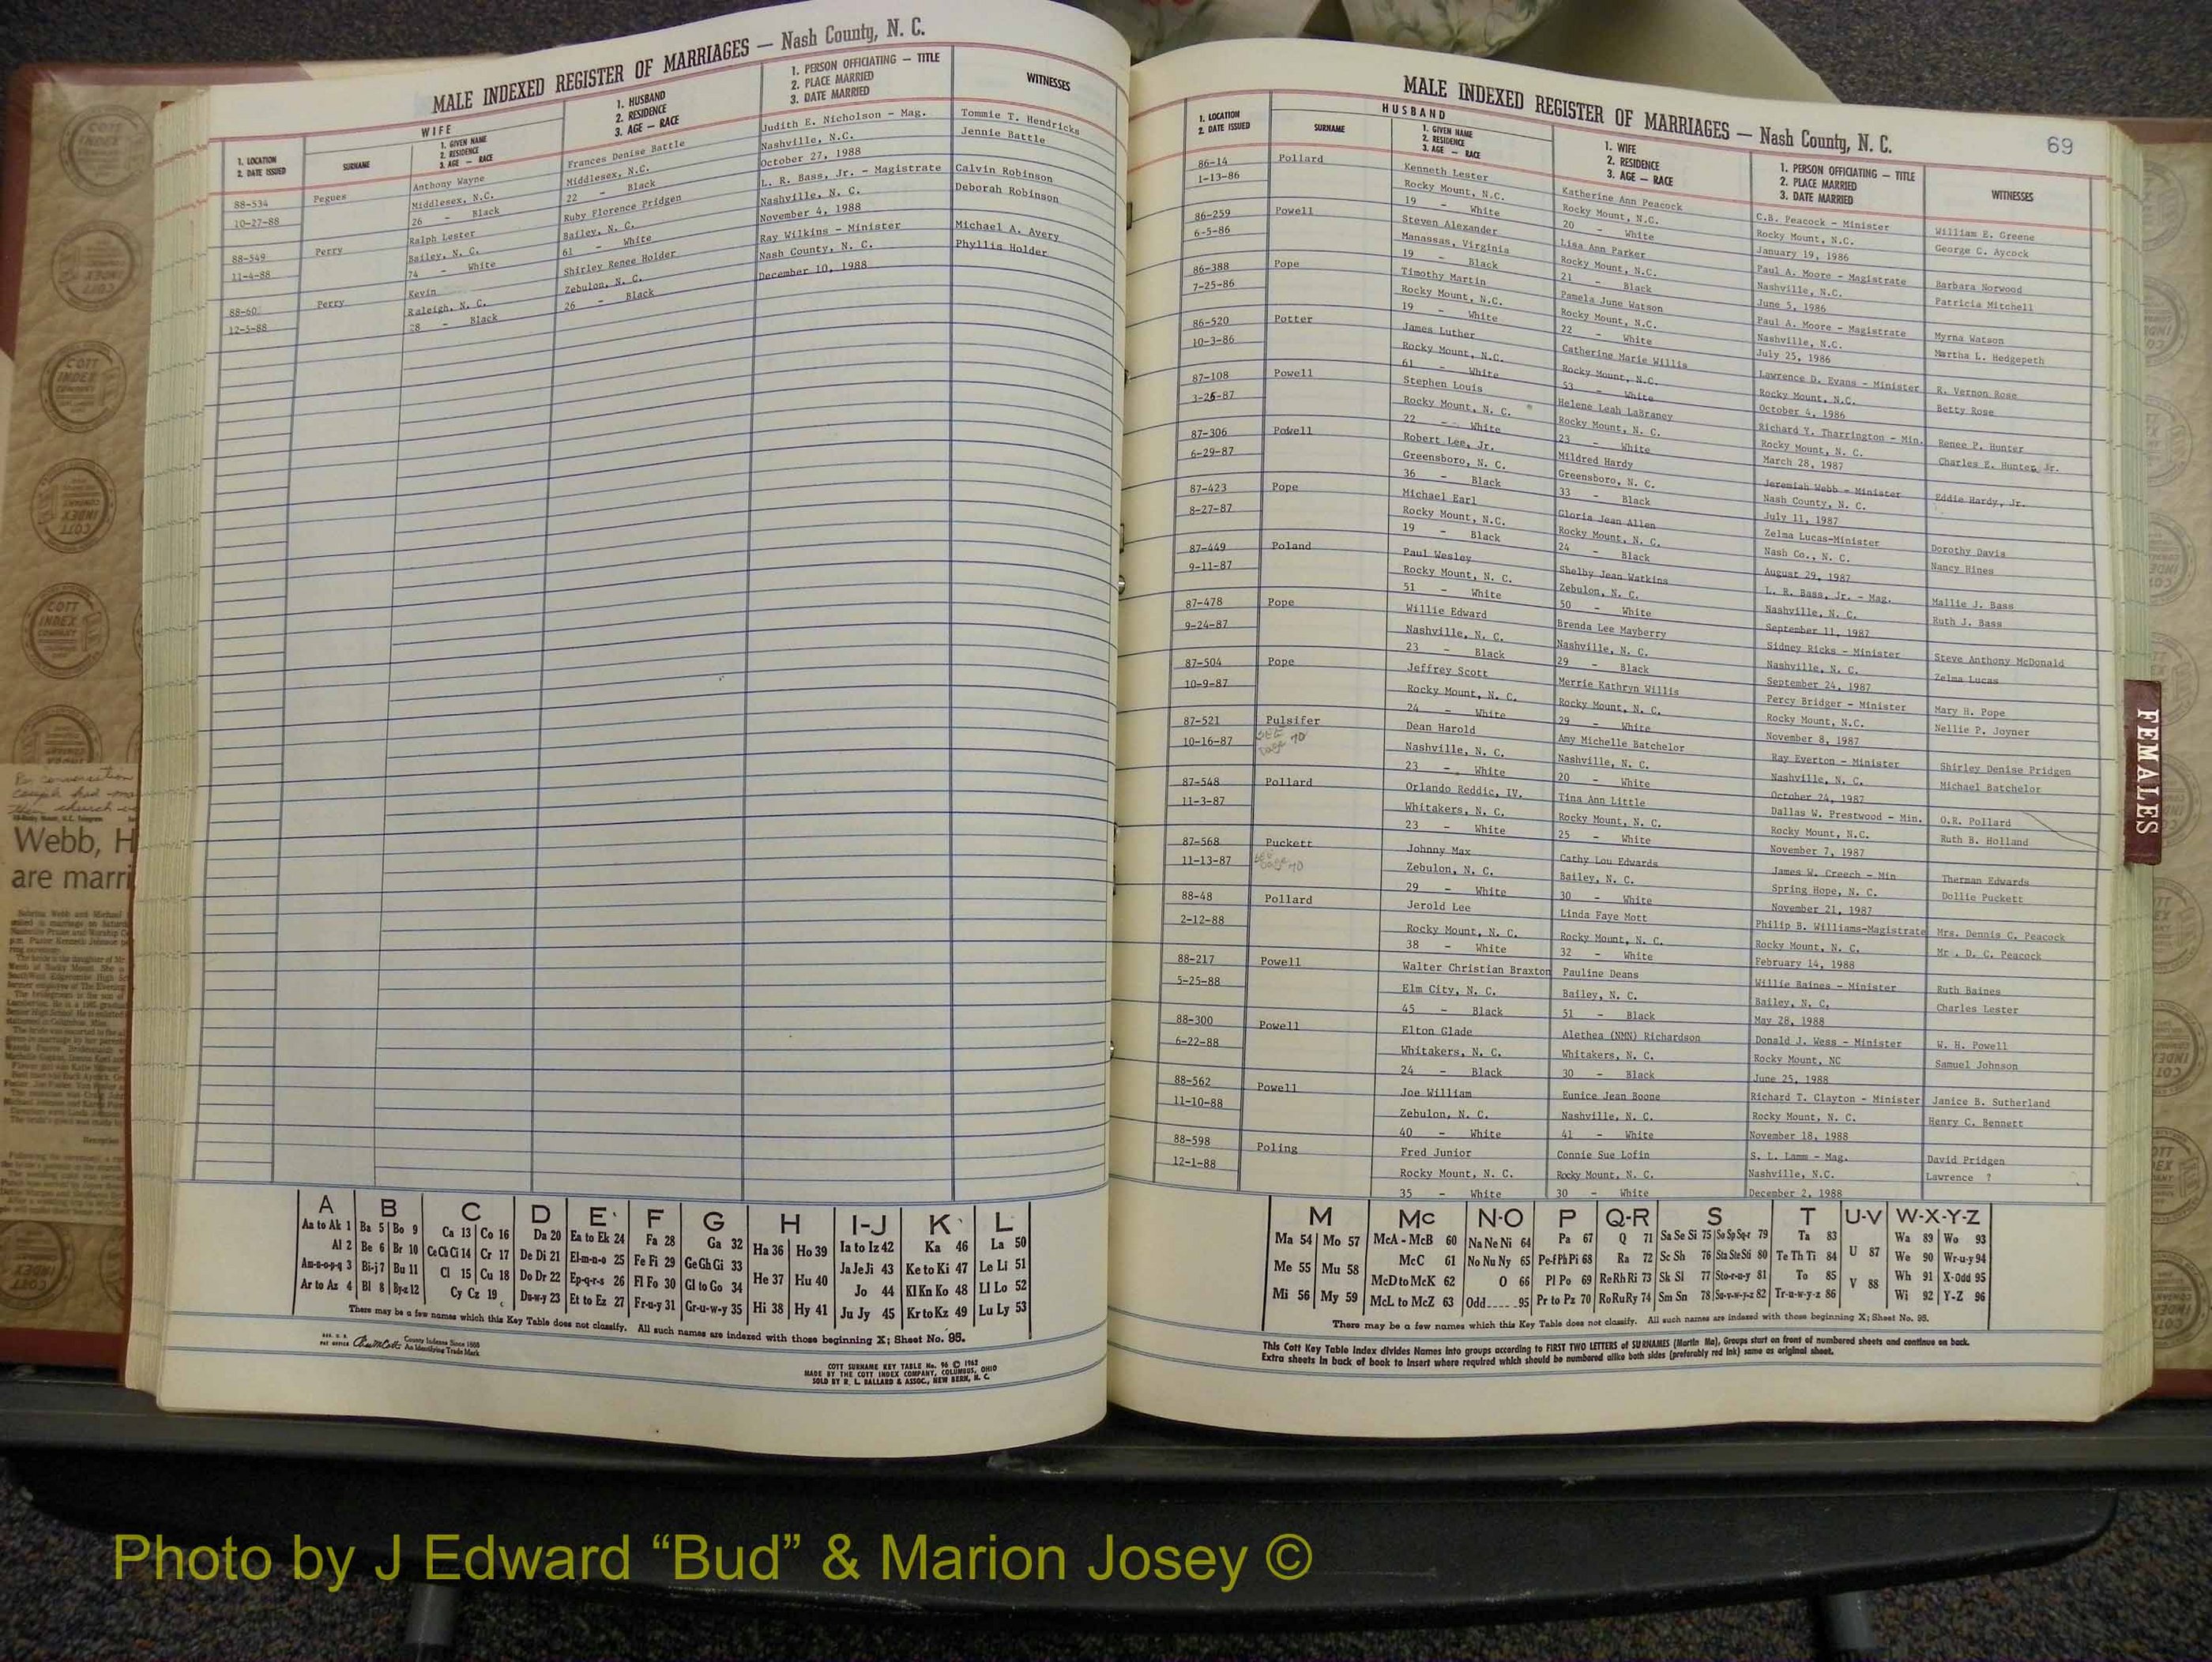 MALE INDEXED REGISTER OF MARRIAGES — Nash County, N. C.
1. LOCATION
2. DATE ISSUED
SURNAME
WIFE
1. GIVEN NAME
2. RESIDENCE
3. AGE — RACE
1. HUSBAND
2. RESIDENCE
3. AGE — RACE
1. PERSON OFFICIATING — TITLE
2. PLACE MARRIED
3. DATE MARRIED
WITNESSES
88-534 Pegues Anthony Wayne Frances Denise Battle Judith E. Nicholson - Mag. Tommie T. Hendricks
10-27-88 Middlesex, N.C. Middlesex, N.C. Nashville, N.C. Jennie Battle
26 - Black 22 - Black October 27, 1988
88-549 Perry Ralph Lester Ruby Florence Pridgen L. R. Bass, Jr. - Magistrate Calvin Robinson
11-4-88 Bailey, N. C. Bailey, N. C. Nashville, N. C. Deborah Robinson
74 - White 61 - White November 4, 1988
88-60 Perry Kevin Shirley Renee Holder Ray Wilkins - Minister Michael A. Avery
12-5-88 Raleigh, N. C. Zebulon, N. C. Nash County, N. C. Phyllis Holder
28 - Black 26 - Black December 10, 1988
A B C D E F G H I-J K L
Aa to Ak 1 Ba 5 Bo 9 Ca 13 Co 16 Da 20 Ea to Ek 24 Fa 28 Ga 32 Ha 36 Ho 39 Ia to Iz 42 Ka 46 La 50
Al 2 Be 6 Br 10 Ce Ch Ci 14 Cr 17 De Di 21 El-m-n-o 25 Fe Fi 29 Ge Gh Gi 33 He 37 Hu 40 Ja Je Ji 43 Ke to Ki 47 Le Li 51
Am-n-o-p-q 3 Bi-j 7 Bu 11 Cl 15 Cu 18 Do Dr 22 Ep-q-r-s 26 Fl Fo 30 Gl to Go 34 Hi 38 Hy 41 Jo 44 Kl Kn Ko 48 Ll Lo 52
Ar to Az 4 Bl 8 By-z 12 Cy Cz 19 Du-w-y 23 Et to Ez 27 Fr-u-y 31 Gr-u-w-y 35 Ju Jy 45 Kr to Kz 49 Lu Ly 53
There may be a few names which this Key Table does not classify. All such names are indexed with those beginning X; Sheet No. 95.
County Indexes Since 1888
An Identifying Trade Mark
COTT SURNAME KEY TABLE No. 96 © 1962
MADE BY THE COTT INDEX COMPANY, COLUMBUS, OHIO
SOLD BY R. L. BALLARD & ASSOC., NEW BERN, N. C.
MALE INDEXED REGISTER OF MARRIAGES — Nash County, N. C.
69
1. LOCATION
2. DATE ISSUED
HUSBAND
SURNAME
1. GIVEN NAME
2. RESIDENCE
3. AGE — RACE
1. WIFE
2. RESIDENCE
3. AGE — RACE
1. PERSON OFFICIATING — TITLE
2. PLACE MARRIED
3. DATE MARRIED
WITNESSES
86-14 Pollard Kenneth Lester Katherine Ann Peacock C.B. Peacock - Minister William E. Greene
1-13-86 Rocky Mount, N.C. Rocky Mount, N.C. Rocky Mount, N.C. George C. Aycock
19 - White 20 - White January 19, 1986
86-259 Powell Steven Alexander Lisa Ann Parker Paul A. Moore - Magistrate Barbara Norwood
6-5-86 Manassas, Virginia Rocky Mount, N.C. Nashville, N.C. Patricia Mitchell
19 - Black 21 - Black June 5, 1986
86-388 Pope Timothy Martin Pamela June Watson Paul A. Moore - Magistrate Myrna Watson
7-25-86 Rocky Mount, N.C. Rocky Mount, N.C. Nashville, N.C. Martha L. Hedgepeth
19 - White 22 - White July 25, 1986
86-520 Potter James Luther Catherine Marie Willis Lawrence D. Evans - Minister R. Vernon Rose
10-3-86 Rocky Mount, N.C. Rocky Mount, N.C. Rocky Mount, N.C. Betty Rose
61 - White 53 - White October 4, 1986
87-108 Powell Stephen Louis Helene Leah LaBraney Richard Y. Tharrington - Min. Renee P. Hunter
3-26-87 Rocky Mount, N. C. Rocky Mount, N. C. Rocky Mount, N. C. Charles E. Hunter, Jr.
22 - White 23 - White March 28, 1987
87-306 Powell Robert Lee, Jr. Mildred Hardy Jeremiah Webb - Minister Eddie Hardy, Jr.
6-29-87 Greensboro, N. C. Greensboro, N. C. Nash County, N. C.
36 - Black 33 - Black July 11, 1987
87-423 Pope Michael Earl Gloria Jean Allen Zelma Lucas-Minister Dorothy Davis
8-27-87 Rocky Mount, N.C. Rocky Mount, N. C. Nash Co., N. C. Nancy Hines
19 - Black 24 - Black August 29, 1987
87-449 Poland Paul Wesley Shelby Jean Watkins L. R. Bass, Jr. - Mag. Mallie J. Bass
9-11-87 Rocky Mount, N. C. Zebulon, N. C. Nashville, N. C. Ruth J. Bass
51 - White 50 - White September 11, 1987
87-478 Pope Willie Edward Brenda Lee Mayberry Sidney Ricks - Minister Steve Anthony McDonald
9-24-87 Nashville, N. C. Nashville, N. C. Nashville, N. C. Zelma Lucas
23 - Black 29 - Black September 24, 1987
87-504 Pope Jeffrey Scott Merrie Kathryn Willis Percy Bridger - Minister Mary H. Pope
10-9-87 Rocky Mount, N. C. Rocky Mount, N. C. Rocky Mount, N.C. Nellie P. Joyner
24 - White 29 - White November 8, 1987
87-521 Pulsifer Dean Harold Amy Michelle Batchelor Ray Everton - Minister Shirley Denise Pridgen
10-16-87 SEE page 70 Nashville, N. C. Nashville, N. C. Nashville, N. C. Michael Batchelor
23 - White 20 - White October 24, 1987
87-548 Pollard Orlando Reddic, IV. Tina Ann Little Dallas W. Prestwood - Min. O.R. Pollard
11-3-87 Whitakers, N. C. Rocky Mount, N. C. Rocky Mount, N.C. Ruth B. Holland
23 - White 25 - White November 7, 1987
87-568 Puckett Johnny Max Cathy Lou Edwards James W. Creech - Min Therman Edwards
11-13-87 SEE page 70 Zebulon, N. C. Bailey, N. C. Spring Hope, N. C. Dollie Puckett
29 - White 30 - White November 21, 1987
88-48 Pollard Jerold Lee Linda Faye Mott Philip B. Williams-Magistrate Mrs. Dennis C. Peacock
2-12-88 Rocky Mount, N. C. Rocky Mount, N. C. Rocky Mount, N. C. Mr. D. C. Peacock
38 - White 32 - White February 14, 1988
88-217 Powell Walter Christian Braxton Pauline Deans Willie Baines - Minister Ruth Baines
5-25-88 Elm City, N. C. Bailey, N. C. Bailey, N. C, Charles Lester
45 - Black 51 - Black May 28, 1988
88-300 Powell Elton Glade Alethea (NMN) Richardson Donald J. Wess - Minister W. H. Powell
6-22-88 Whitakers, N. C. Whitakers, N. C. Rocky Mount, NC Samuel Johnson
24 - Black 30 - Black June 25, 1988
88-562 Powell Joe William Eunice Jean Boone Richard T. Clayton - Minister Janice B. Sutherland
11-10-88 Zebulon, N. C. Nashville, N. C. Rocky Mount, N. C. Henry C. Bennett
40 - White 41 - White November 18, 1988
88-598 Poling Fred Junior Connie Sue Lofin S. L. Lamm - Mag. David Pridgen
12-1-88 Rocky Mount, N. C. Rocky Mount, N. C. Nashville, N.C. Lawrence ?
35 - White 30 - White December 2, 1988
M Mc N-O P Q-R S T U-V W-X-Y-Z
Ma 54 Mo 57 McA - McB 60 Na Ne Ni 64 Pa 67 Q 71 Sa Se Si 75 So Sp Sq-r 79 Ta 83 U 87 Wa 89 Wo 93
Me 55 Mu 58 McC 61 No Nu Ny 65 Pe-f Ph Pi 68 Ra 72 Sc Sh 76 Sta Ste Sti 80 Te Th Ti 84 V 88 We 90 Wr-u-y 94
McD to McK 62 O 66 Pl Po 69 Re Rh Ri 73 Sk Sl 77 Sto-r-u-y 81 To 85 Wh 91 X-Odd 95
Mi 56 My 59 McL to McZ 63 Odd 95 Pr to Pz 70 Ro Ru Ry 74 Sm Sn 78 Su-v-w-y-z 82 Tr-u-w-y-z 86 Wi 92 Y-Z 96
There may be a few names which this Key Table does not classify. All such names are indexed with those beginning X; Sheet No. 95.
This Cott Key Table Index divides Names into groups according to FIRST TWO LETTERS of SURNAMES (Martin Ma), Groups start on front of numbered sheets and continue on back.
Extra sheets in back of book to insert where required which should be numbered alike both sides (preferably red ink) same as original sheet.
FEMALES
COTT
INDEX
COMPANY
Webb, H
are marri
Photo by J Edward “Bud” & Marion Josey ©